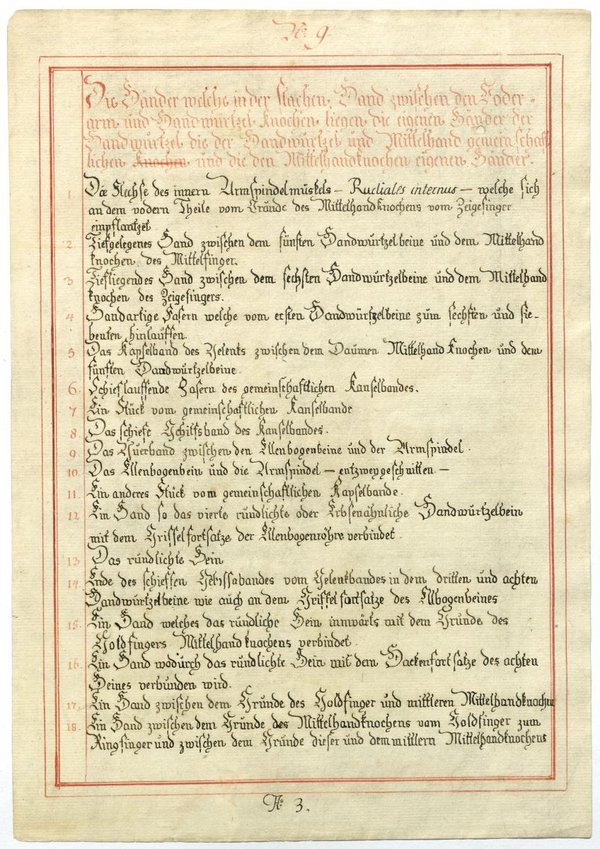 N: 9.
Die Bänder welche in der flachen Hand zwischen den Voder-
arm und Handwurtzel-Knochen liegen die eigenen Bänder der
Handwürtzel die der Handwürtzel und Mittelhand gemeinschaft
lichen Knochen und die den Mittelhandknochen eigenen Bänder.
1 Die Flechse des innern Armspindelmuskels – Radialis internus – welche sich
an dem vodern Theile vom Gründe des Mittelhandknochens vom Zeigefinger
einpflantzet
2. Tiefgelegenes Band zwischen dem fünften Handwürtzelbeine und dem Mittelhand
knochen des Mittelfinger.
3 Tiefliegendes Band zwischen dem sechsten Handwürtzelbeine und dem Mittelhand
knochen des Zeigefingers.
4 Bandartige Fasern welche vom ersten Handwürtzelbeine zum sechsten und sie-
benten hinlauffen
5 Das Kapselband des Gelenks zwischen dem Daumen Mittelhand Knochen und dem
fünften Handwürtzelbeine.
6. Schieflauffende Fasern des gemeinschaftlichen Kapselbandes.
7 Ein Stück vom gemeinschaftlichen Kapselbande
8 Das schiefe Hilfsband des Kapselbandes.
9 Das Querband zwischen den Ellenbogenbeine und der Armspindel.
10. Das Ellenbogenbein und die Armspindel – entzweygeschnitten –
11. Ein anderes Stück vom gemeinschaftlichen Kapselbande.
12 Ein Band so das vierte ründlichte oder Erbsenähnliche Handwürtzelbein
mit dem Griffelfortsatze der Ellenbogenröhre verbindet.
13. Das ründlichte Bein
14. Ende des schieffen Hilfsbandes vom Gelenkbandes in dem dritten und achten
Handwürtzelbeine wie auch an dem Griffelfortsatze des Ellbogenbeines
15. Ein Band welches das ründliche Bein innwärts mit dem Gründe des
Goldfingers Mittelhandknochens verbindet.
16. Ein Band wodürch das ründlichte Bein mit dem Hackenfortsatze des achten
Beines verbünden wird.
17. Ein Band zwischen dem Gründe des Goldfinger und mittleren Mittelhandknochn
18. Ein Band zwischen dem Gründe des Mittelhandknochens vom Goldfinger zum
Ringfinger und zwischen dem Gründe dieser und dem mittlern Mittelhandknochens
N: 3.